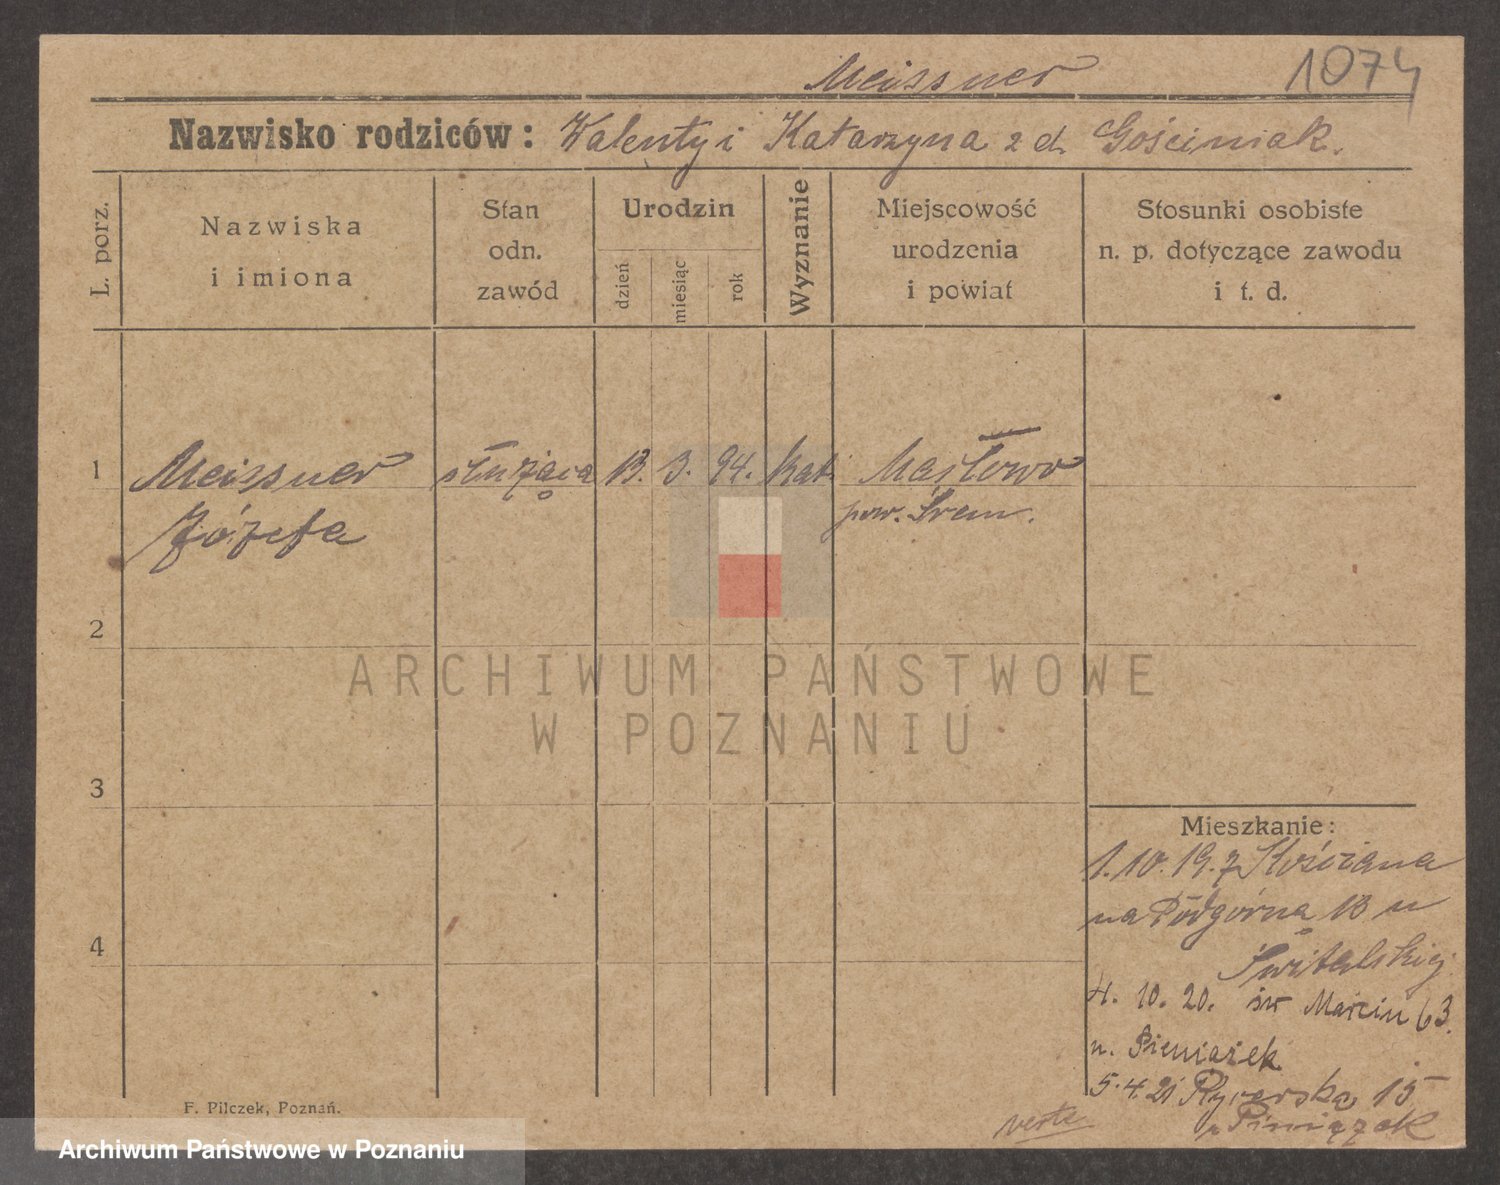 Meissner 1074
Nazwisko rodziców: Walenty i Katarzyna z d. Gościniak.
L. porz.
Nazwiska
i imiona
Stan
odn.
zawód
Urodzin
dzień
miesiąc
rok
Wyznanie
Miejscowość
urodzenia
i powiat
Stosunki osobiste
n. p. dotyczące zawodu
i t. d.
1 Meissner służąca 13. 3. 94. kat. Masłowo
Józefa pow. Śrem.
2
ARCHIWUM PAŃSTWOWE
W POZNANIU
3
Mieszkanie:
1.10.19. z Kościana
na Podgórną 13 u
Świtalskiej
4
4. 10. 20. św Marcin 63.
u. Pieniążek
5.4.21 Rycerska 15
u Piniążek
verte
F. Pilczek, Poznań.
Archiwum Państwowe w Poznaniu